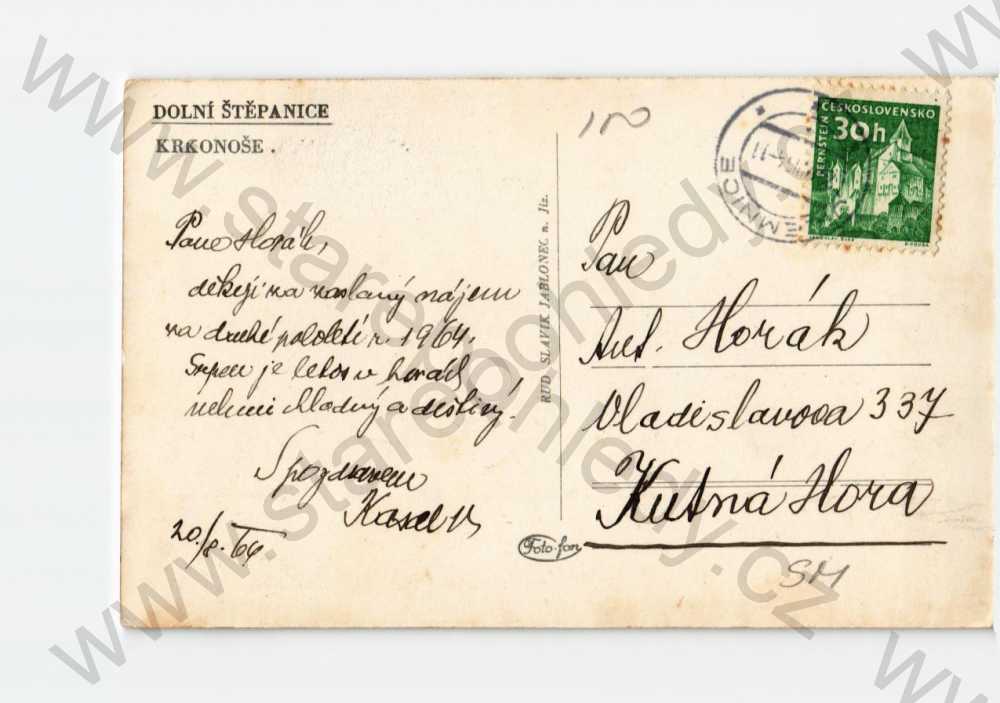 DOLNÍ ŠTĚPANICE
KRKONOŠE.
Pane Horák,
děkuji za zaslaný nájem
za druhé pololetí r. 1964.
Srpen je letos v horách
velmi chladný a deštivý.
S pozdravem
20./8. 64
RUD SLAVÍK JABLONEC n. Jiz.
Foto-fon
150
ČESKOSLOVENSKO
30h
PERNŠTEJN
MNICE
-11
Pan
Ant. Horák
Vladislavova 337
Kutná Hora
SM
www.starepohledy.cz